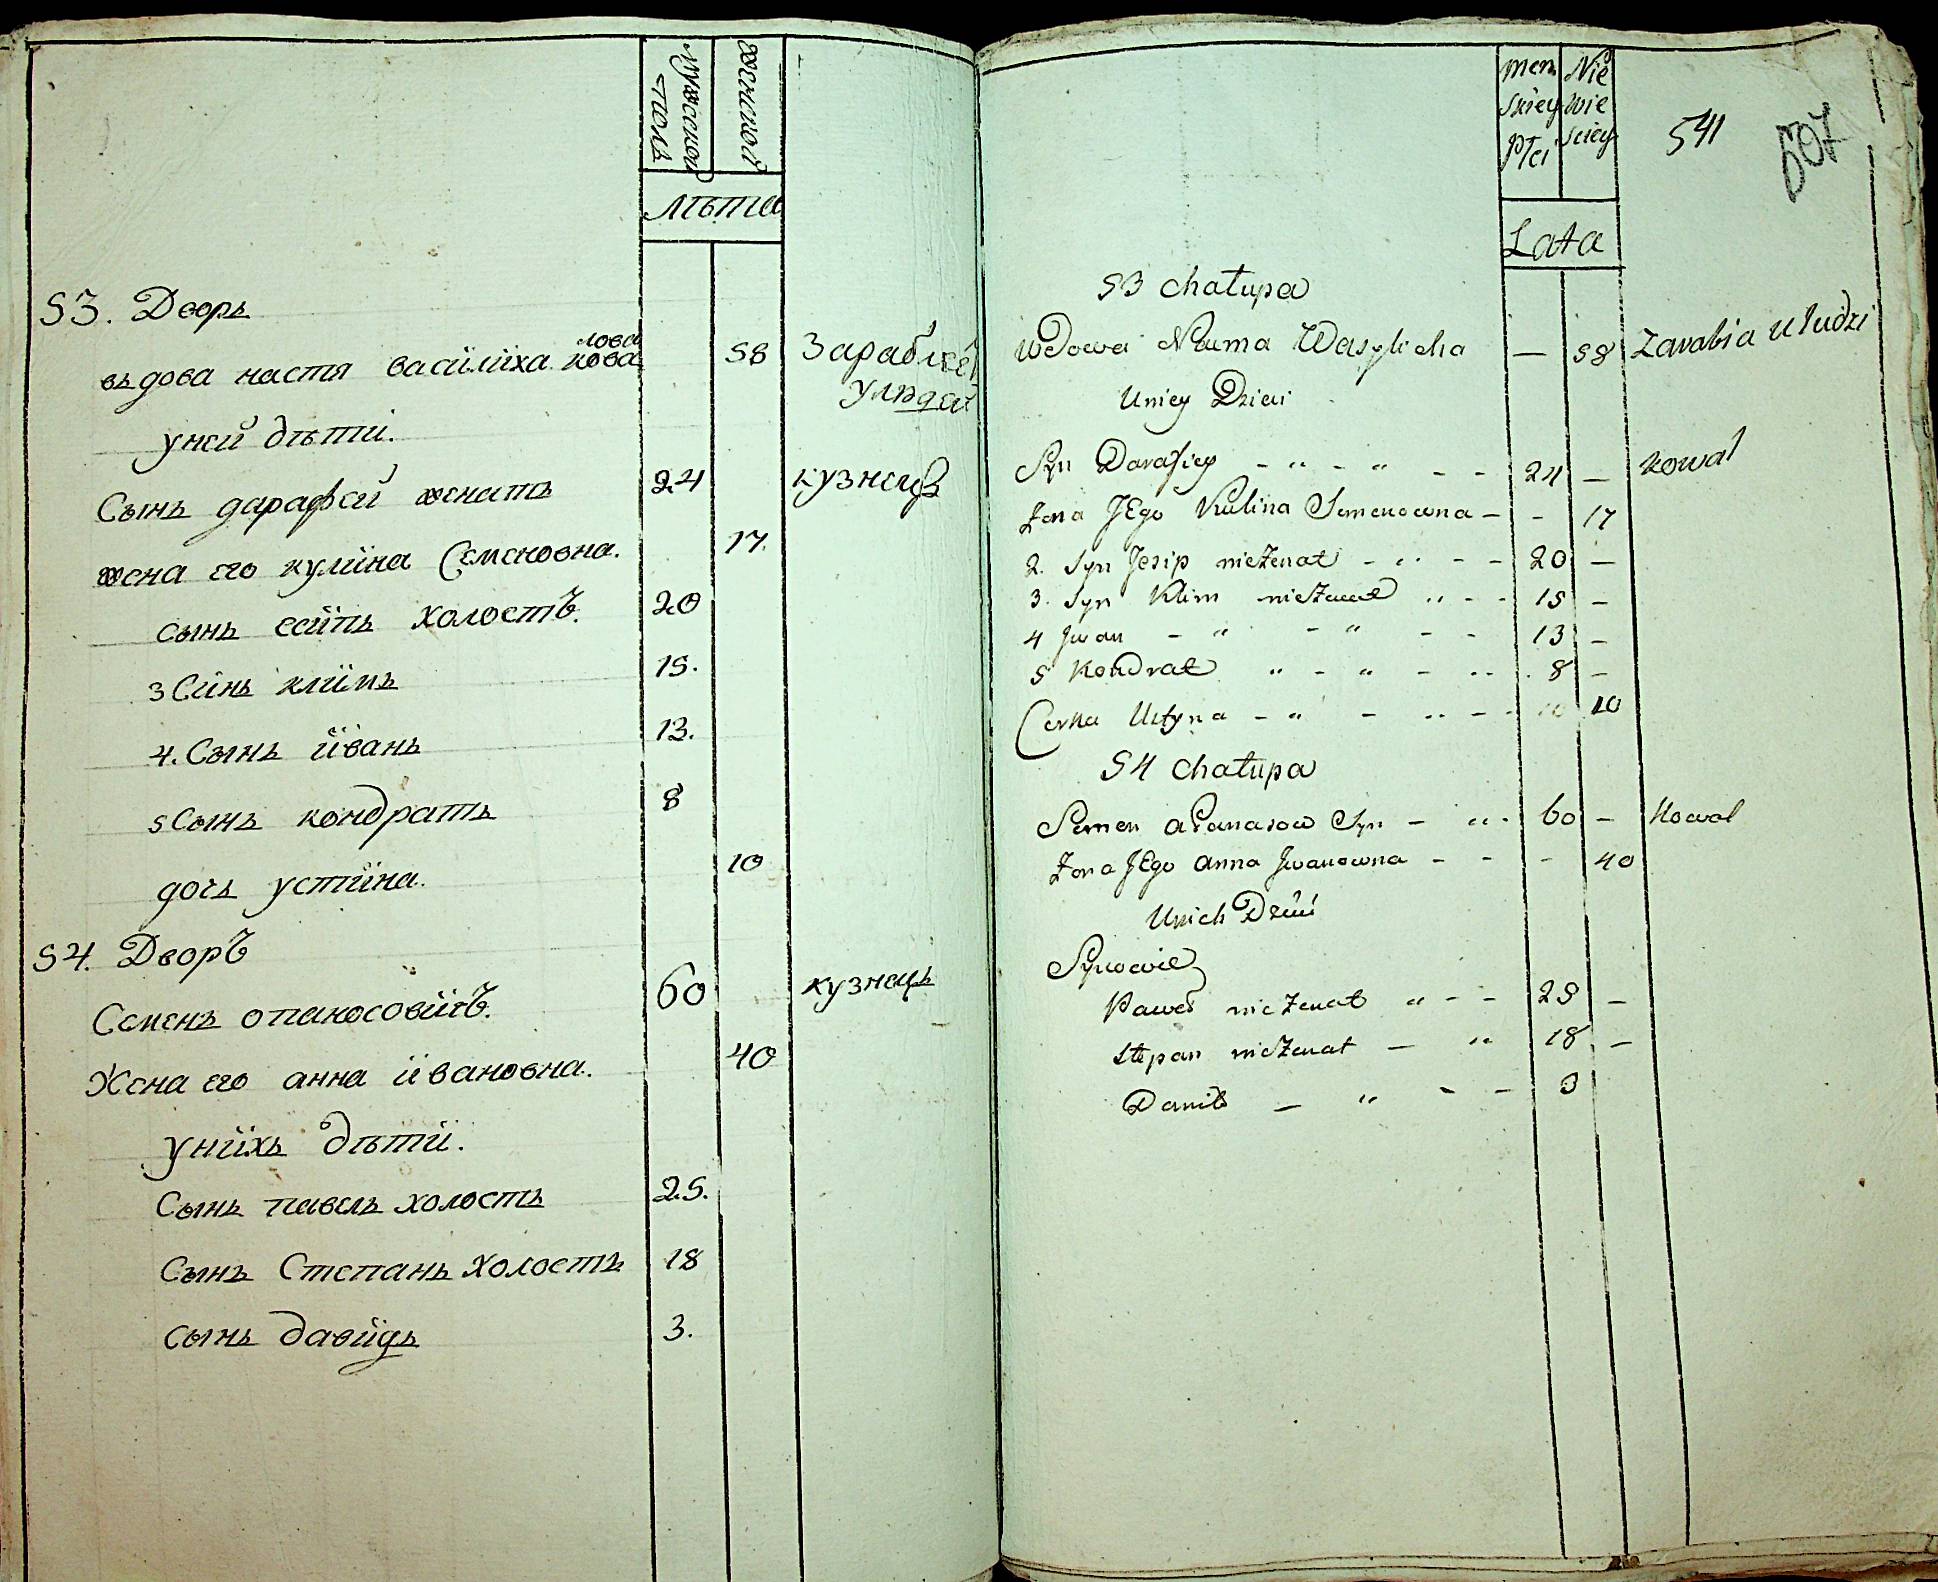 мужской
полъ
женской
лѣта
53. Дворъ
лова
вьдова настя васїлїха кова 58 Зараблѣ
ỹ людей
ỹ ней дѣти.
Сынъ дарафей женатъ 24 кузнецъ
жена его кулїна Семеновна. 17.
сынъ есїпъ холостъ. 20
3 Сїнъ клїмъ 15.
4. Сынъ їванъ 13.
5 Сынъ кондратъ 8
дочъ устїна. 10
54. Дворъ
Семенъ опаносовїчъ. 60 кузнецъ
Жена его анна ївановна. 40
у нїхъ дѣтї.
Сынъ павелъ холостъ 25.
Сынъ Степанъ холостъ 18
сынъ давїдъ 3.
męz
skiey
Płci
Nie
wie
sciey
541
507
Lata
53 chałupa
wdowa Nauma Wasylicha — 58 Zarabia u ludzi
U niey Dzieci
Syn Darafiey - " - " - - 24 — kowal
Żona JEgo Kulina Semenowna - - 17
2. Syn Jesip nieżenat - " - - 20 —
3. Syn Klim nieżenat " - - 15 —
4 Jwan - " - " - - 13 —
5 Kondrat " - " - " . 8 —
Corka Ustyna - " - " - - 10
54 chałupa
Semen aPanasow Syn - " - 60 — Kowal
Żona JEgo anna Jwanowna - - - 40
U nich Dzieci
Synowie
Paweł nieżenat " - - 25 —
Stepan nieżenat — " 18 —
Daniło — " - - 3